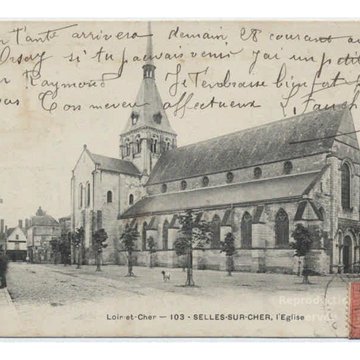 ta tante arrivera demain 28 courant au
Orsay si tu pouvais venir J'ai un petit
Raymond Je t'embrasse bien fort
Ton neveu affectueux
Loir-et-Cher — 103 - SELLES-SUR-CHER, l'Eglise
Reproduction